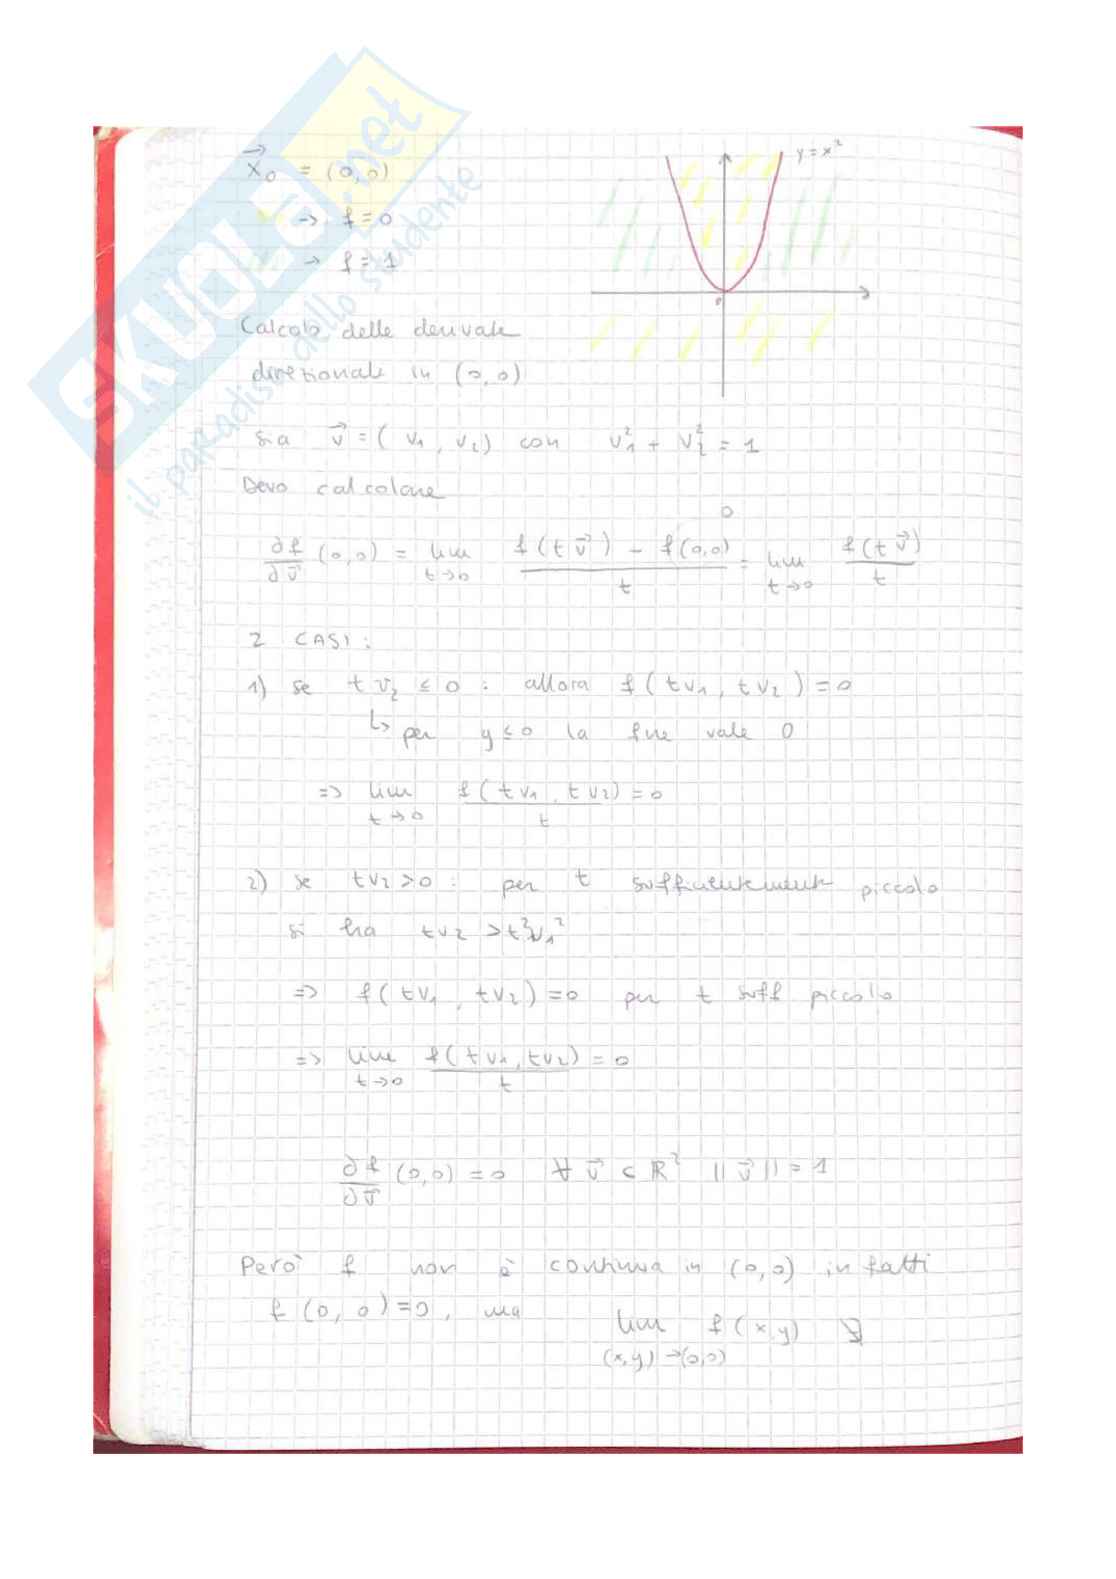 SKUOLA.net
il paradiso dello studente
x⃗₀ = (0,0)
→ f=0
→ f=1
y=x²
0
Calcolo delle derivate
direzionale in (0,0)
Sia v⃗ = (v₁, v₂) con v₁² + v₂² = 1
Devo calcolare
∂f/∂v⃗ (0,0) = lim t→0 (f(t v⃗) - f(0,0))/t = lim t→0 f(t v⃗)/t
0
2 CASI:
1) se t v₂ ≤ 0 : allora f(tv₁, tv₂) = 0
↳ per y≤0 la fne vale 0
=> lim t→0 f(tv₁, tv₂)/t = 0
2) se tv₂>0 : per t sufficientemente piccolo
si ha tv₂ > t²v₁²
=> f(tv₁, tv₂)=0 per t suff piccolo
=> lim t→0 f(tv₁, tv₂)/t = 0
∂f/∂v⃗ (0,0) = 0 ∀ v⃗ ⊂ ℝ² ||v⃗|| = 1
Però f non è continua in (0,0) infatti
f(0,0)=0, ma lim (x,y)→(0,0) f(x,y) ∄